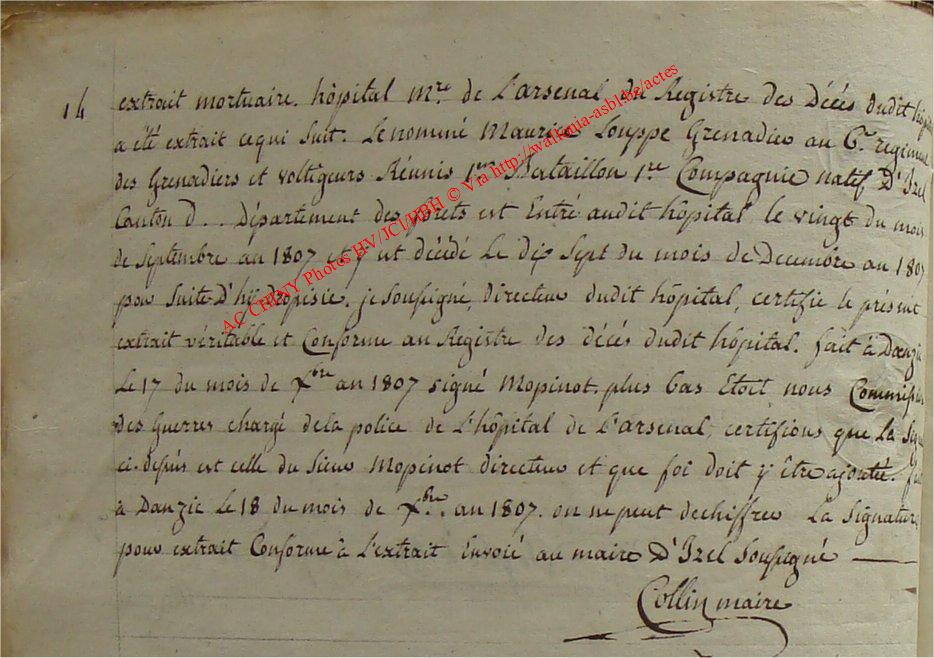 14 extrait mortuaire. hôpital m.re de L'arsenal, du Registre des Décés dudit hôpital
a été extrait ce qui suit. Le nommé Maurice Souppe Grenadier au 6.e régiment
des Grenadiers et voltigeurs Réunis 1.er Bataillon 1.re Compagnie natif D'Izel
Canton D... Département des forets est Entré audit hôpital le vingt du mois
de Septembre an 1807 et y est décédé Le Dix Sept du mois de Decembre an 1807
par Suite D'hydropisie. je soussigné, directeur dudit hôpital, certifie le présent
extrait véritable et Conforme au Registre des décés dudit hôpital. fait à Danzic
Le 17 du mois de Xbre an 1807 signé Mopinot. plus bas Etoit nous Commissaire
Des Guerres chargé de la police de L'hôpital de L'arsenal, certifions que La Sign
ci-depus est celle du Sieur Mopinot directeur et que foi doit y être ajoutée. fait
à Danzic Le 18 du mois de Xbre. an 1807. on ne peut dechiffrer La Signature
pour extrait Conforme à L'extrait Envoié au maire D'Izel Soussigné
Collin maire
AC CHINY Photos HV/JCI/PBH © Via http://wallonia-asbl.be/actes